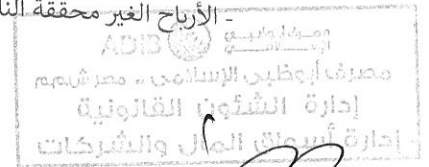 - الأرباح الغير محققة النا
ADIB
مصرف أبوظبي الإسلامي - مصر ش.م.م
إدارة الشئون القانونية
إدارة أسواق المال والشركات